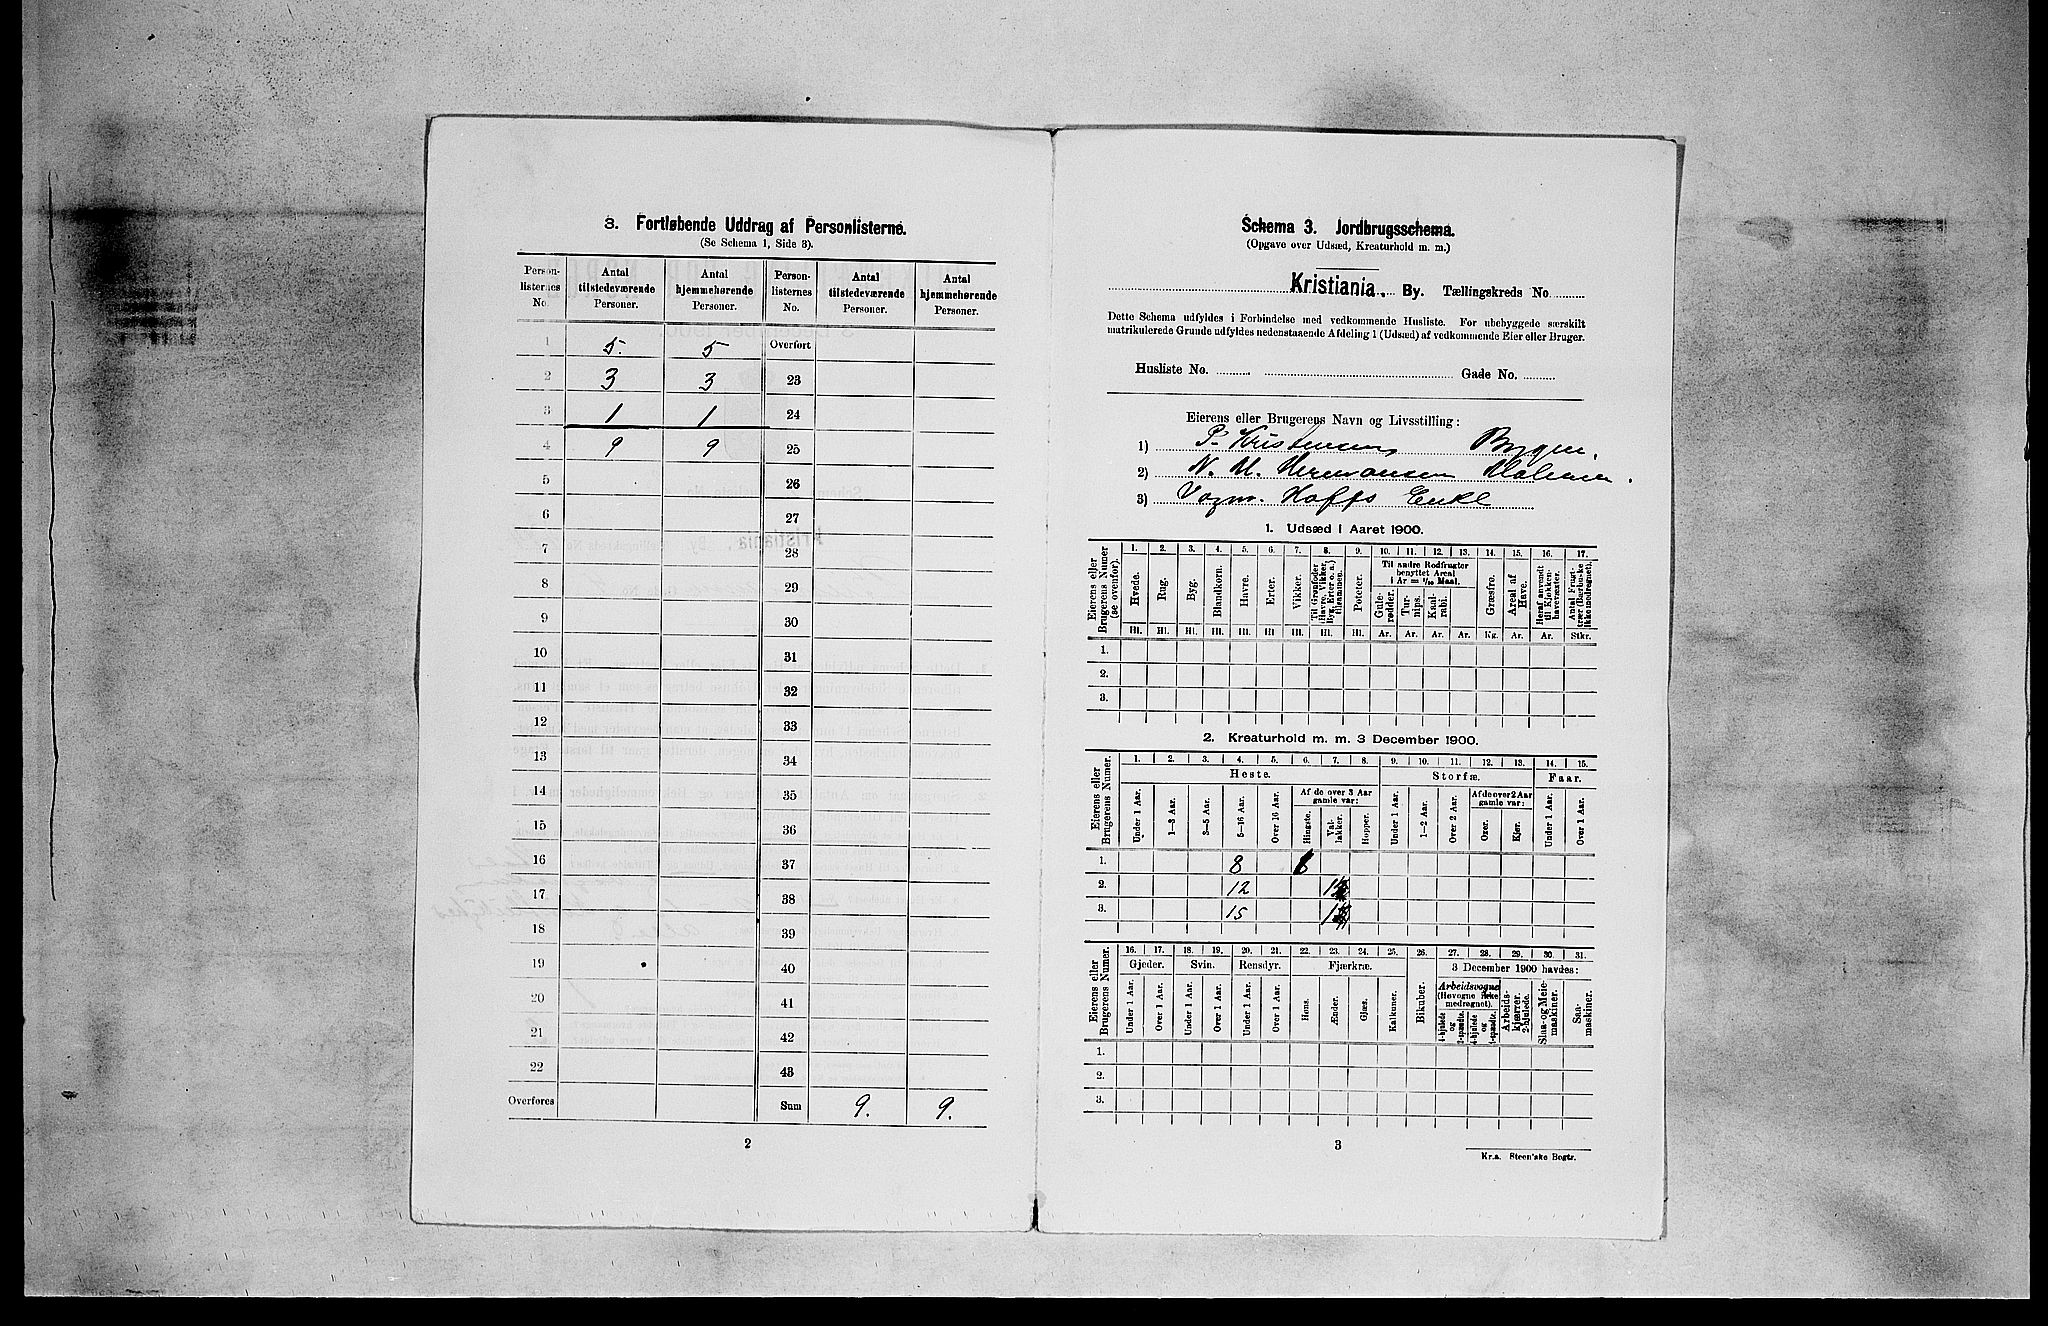 3. Fortløbende Uddrag af Personlisterne.
(Se Schema 1, Side 3).
Person-listernes No. | Antal tilstedeværende Personer. | Antal hjemmehørende Personer. | Person-listernes No. | Antal tilstedeværende Personer. | Antal hjemmehørende Personer.
1 | 5. | 5 | Overført
2 | 3 | 3 | 23
3 | 1 | 1 | 24
4 | 9 | 9 | 25
5 | 26
6 | 27
7 | 28
8 | 29
9 | 30
10 | 31
11 | 32
12 | 33
13 | 34
14 | 35
15 | 36
16 | 37
17 | 38
18 | 39
19 | 40
20 | 41
21 | 42
22 | 43
Overføres | Sum | 9. | 9.
2
Schema 3. Jordbrugsschema.
(Opgave over Udsæd, Kreaturhold m. m.)
Kristiania. By. Tællingskreds No.
Dette Schema udfyldes i Forbindelse med vedkommende Husliste. For ubebyggede særskilt
matrikulerede Grunde udfyldes nedenstaaende Afdeling 1 (Udsæd) af vedkommende Eier eller Bruger.
Husliste No. Gade No.
Eierens eller Brugerens Navn og Livsstilling:
1) P. Kristensen
2) N. M. Hermansen
3) Vogm. Hoffs Enke
1. Udsæd i Aaret 1900.
Eierens eller Brugerens Numer (se ovenfor).
1. 2. 3. 4. 5. 6. 7. 8. 9. 10. 11. 12. 13. 14. 15. 16. 17.
Til andre Rodfrugter benyttet Areal i Ar = 1/10 Maal.
Hvede. Rug. Byg. Blandkorn. Havre. Erter. Vikker. Til Grønfoder (Havre, Vikker, Byg, Erter o. a.) tilsammen. Poteter. Gule-rødder. Tur-nips. Kaal-rabi. Græsfrø. Areal af Have. Heraf anvendt til Kjøkken-havevæxter. Antal Frugt-træer (Bærbuske ikke medregnet).
Hl. Hl. Hl. Hl. Hl. Hl. Hl. Hl. Hl. Ar. Ar. Ar. Ar. Kg. Ar. Ar. Stkr.
1.
2.
3.
2. Kreaturhold m. m. 3 December 1900.
Eierens eller Brugerens Numer.
1. 2. 3. 4. 5. 6. 7. 8. 9. 10. 11. 12. 13. 14. 15.
Heste. Storfæ. Faar.
Af de over 3 Aar gamle var: Af de over 2 Aar gamle var:
Under 1 Aar. 1—3 Aar. 3—5 Aar. 5—16 Aar. Over 16 Aar. Hingste. Val-lakker. Hopper. Under 1 Aar. 1—2 Aar. Over 2 Aar. Oxer. Kjør. Under 1 Aar. Over 1 Aar.
1. 8
2. 12
3. 15
Eierens eller Brugerens Numer.
16. 17. 18. 19. 20. 21. 22. 23. 24. 25. 26. 27. 28. 29. 30. 31.
Gjeder. Svin. Rensdyr. Fjærkræ. 3 December 1900 havdes:
Arbeidsvogne (Høvogne ikke medregnet).
Under 1 Aar. Over 1 Aar. Under 1 Aar. Over 1 Aar. Under 1 Aar. Over 1 Aar. Høns. Ænder. Gjæs. Kalkuner. Bikuber. 4-hjulede og 2-spændte. 4-hjulede og 1-spændte. Arbeids-kjærrer, 2-hjulede. Slaa- og Meie-maskiner. Saa-maskiner.
1.
2.
3.
3
Kr.a. Steen'ske Bogtr.